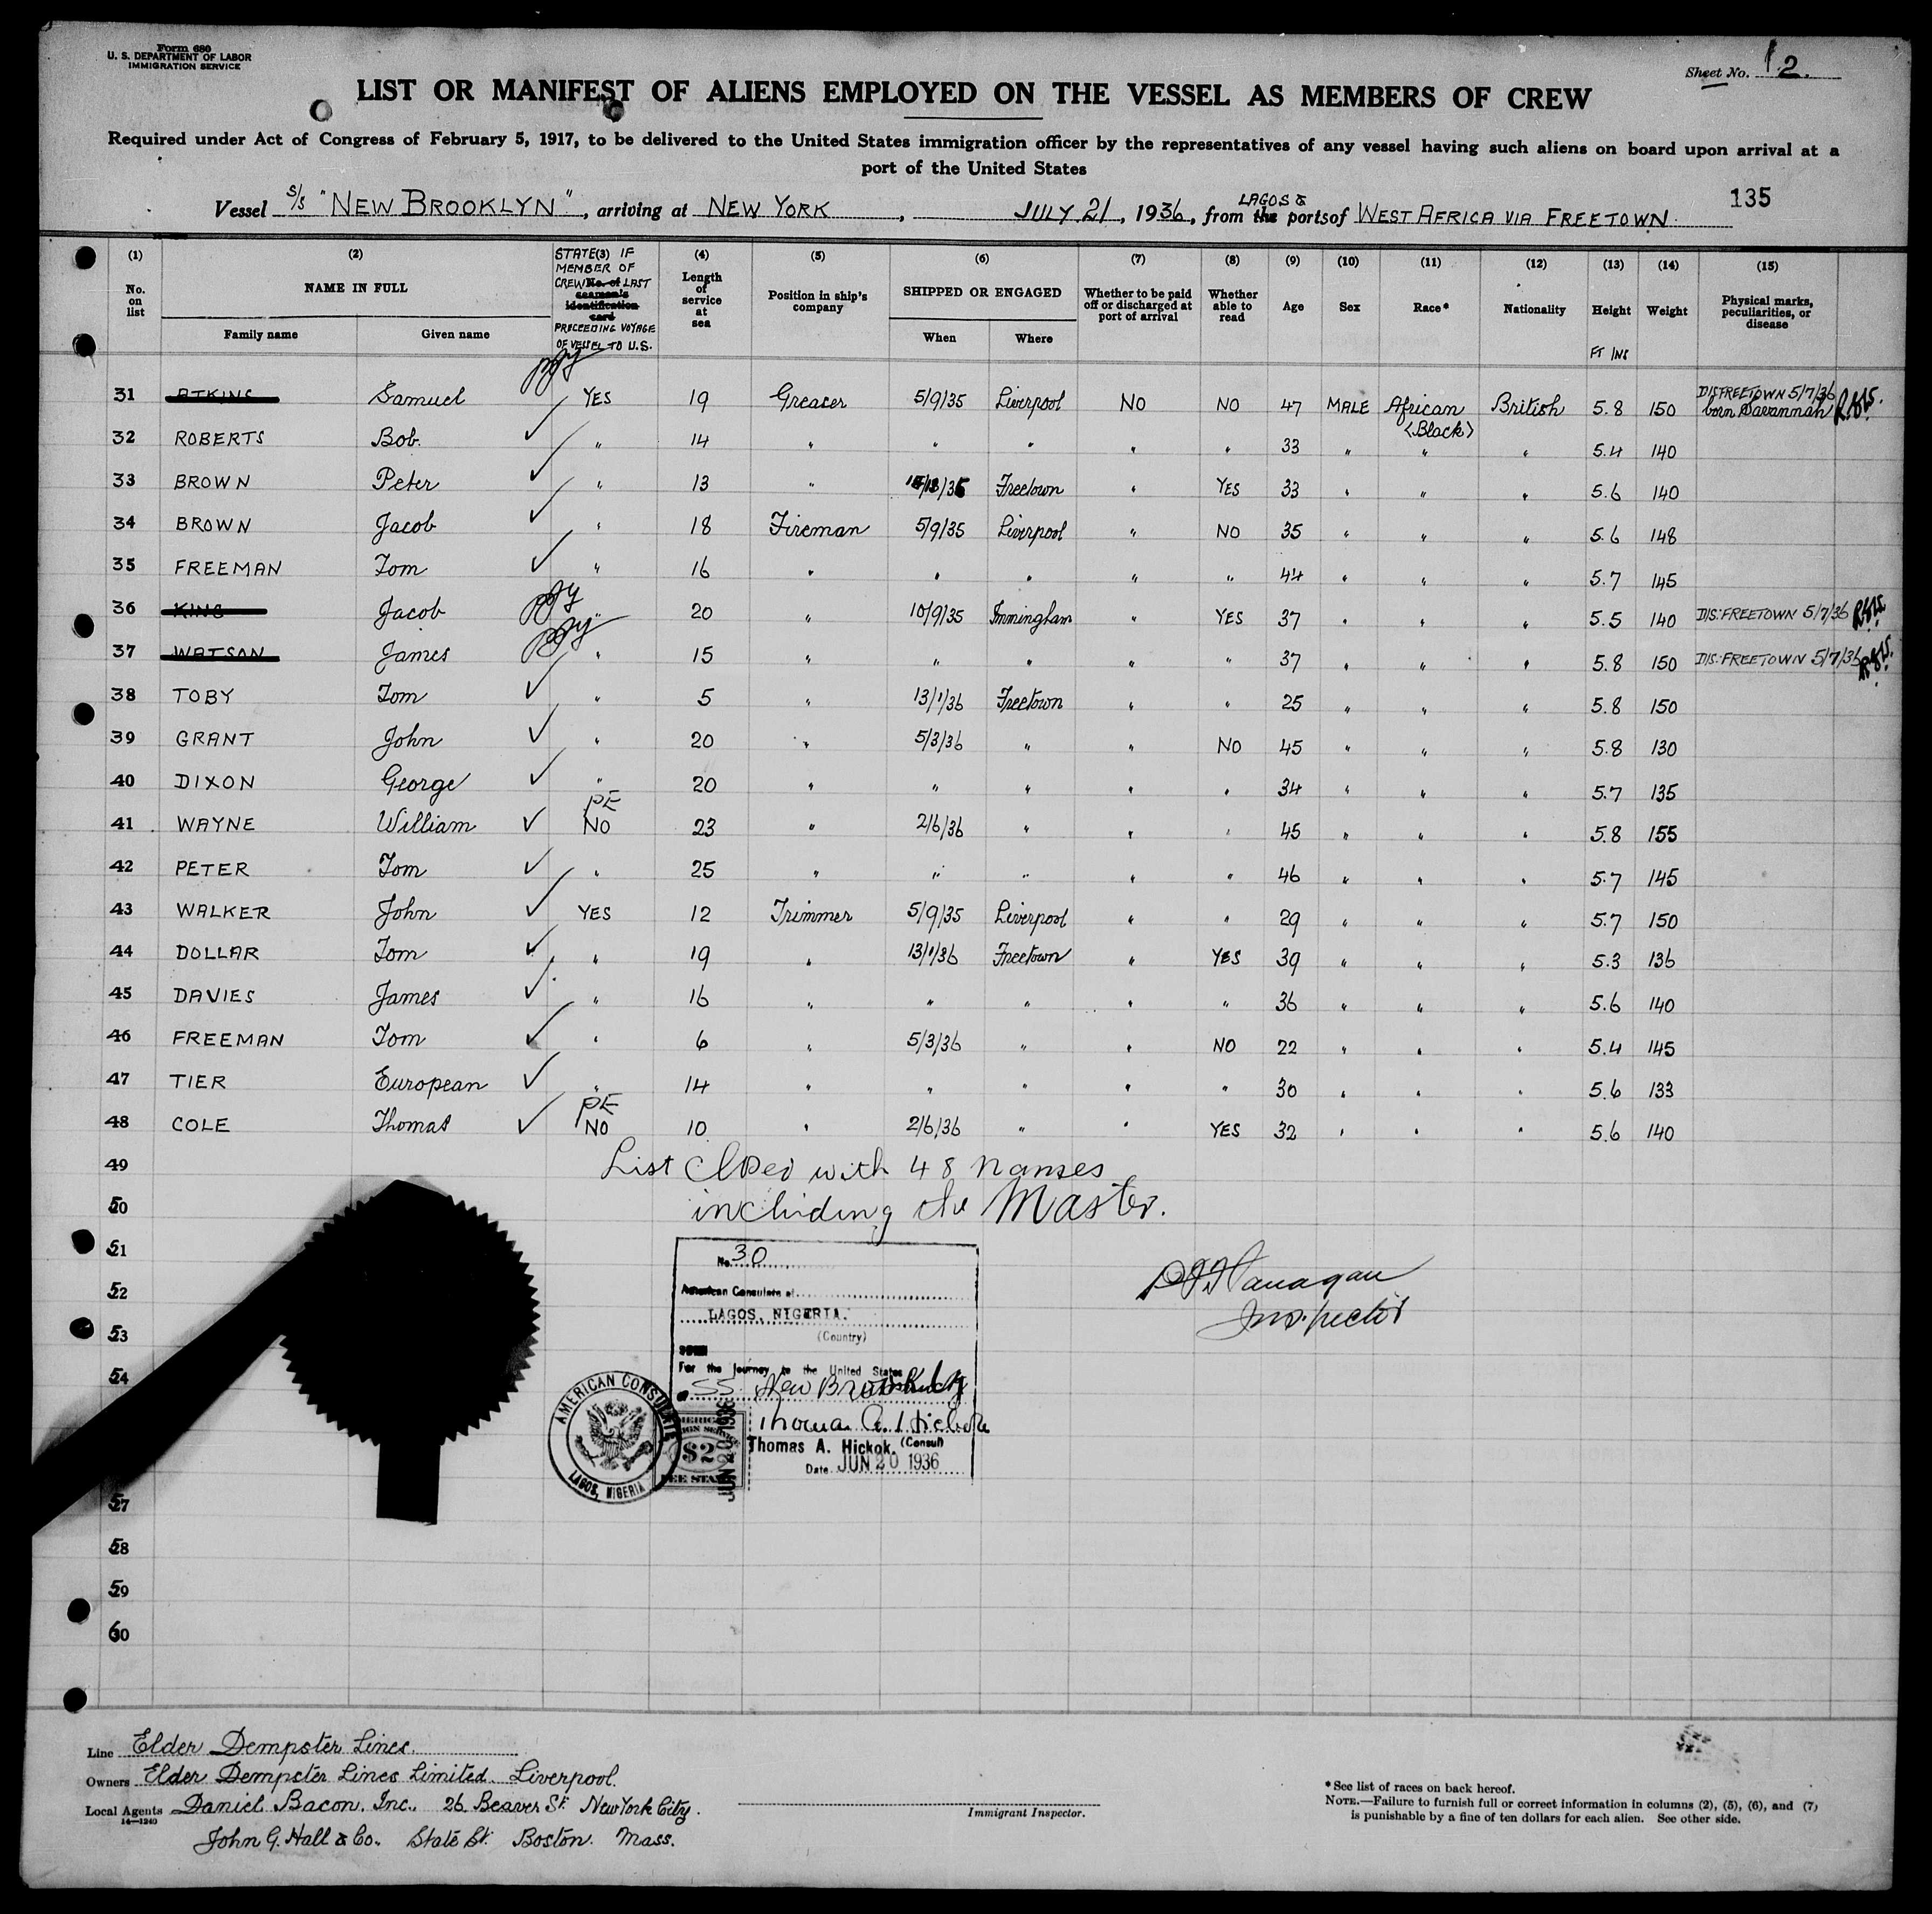 Form 680
U. S. DEPARTMENT OF LABOR
IMMIGRATION SERVICE
Sheet No. 2.
LIST OR MANIFEST OF ALIENS EMPLOYED ON THE VESSEL AS MEMBERS OF CREW
Required under Act of Congress of February 5, 1917, to be delivered to the United States immigration officer by the representatives of any vessel having such aliens on board upon arrival at a
port of the United States
135
Vessel S/S "NEW BROOKLYN", arriving at NEW YORK, JULY 21, 1936, from the LAGOS & ports of WEST AFRICA VIA FREETOWN.
(1) (2) (3) (4) (5) (6) (7) (8) (9) (10) (11) (12) (13) (14) (15)
No. on list
NAME IN FULL
Family name Given name
STATE IF MEMBER OF CREW No. of LAST seaman's identification card PRECEEDING VOYAGE OF VESSEL TO U.S.
Length of service at sea
Position in ship's company
SHIPPED OR ENGAGED
When Where
Whether to be paid off or discharged at port of arrival
Whether able to read
Age Sex Race* Nationality Height Weight
FT INS
Physical marks, peculiarities, or disease
31 ATKINS Samuel YES 19 Greaser 5/9/35 Liverpool NO NO 47 MALE African <Black> British 5.8 150 DIS FREETOWN 5/7/36 born Savannah
32 ROBERTS Bob. " 14 " " " " " 33 " " " 5.4 140
33 BROWN Peter " 13 " Freetown " YES 33 " " " 5.6 140
34 BROWN Jacob " 18 Fireman 5/9/35 Liverpool " NO 35 " " " 5.6 148
35 FREEMAN Tom " 16 " " " " " 44 " " " 5.7 145
36 KING Jacob " 20 " 10/9/35 Immingham " YES 37 " " " 5.5 140 DIS: FREETOWN 5/7/36
37 WATSON James " 15 " " " " " 37 " " " 5.8 150 DIS: FREETOWN 5/7/36
38 TOBY Tom " 5 " 13/1/36 Freetown " " 25 " " " 5.8 150
39 GRANT John " 20 " 5/3/36 " " NO 45 " " " 5.8 130
40 DIXON George " 20 " " " " " 34 " " " 5.7 135
41 WAYNE William PE NO 23 " 2/6/36 " " " 45 " " " 5.8 155
42 PETER Tom " 25 " " " " " 46 " " " 5.7 145
43 WALKER John YES 12 Trimmer 5/9/35 Liverpool " " 29 " " " 5.7 150
44 DOLLAR Tom " 19 " 13/1/36 Freetown " YES 39 " " " 5.3 136
45 DAVIES James " 16 " " " " " 36 " " " 5.6 140
46 FREEMAN Tom " 6 " 5/3/36 " " NO 22 " " " 5.4 145
47 TIER European " 14 " " " " " 30 " " " 5.6 133
48 COLE Thomas PE NO 10 " 2/6/36 " " YES 32 " " " 5.6 140
49 List closed with 48 names
50 including the Master.
51
52
53
54
57
58
59
60
Flanagan
Inspector
No. 30
American Consulate at
LAGOS, NIGERIA.
(Country)
SEEN
For the journey to the United States
of SS. New Brooklyn
Thomas A. Hickok
Thomas A. Hickok. (Consul)
Date JUN 20 1936
AMERICAN CONSULATE
LAGOS, NIGERIA
$2
FEE STAMP
JUN 20 1936
Line Elder Dempster Lines.
Owners Elder Dempster Lines Limited. Liverpool.
Local Agents Daniel Bacon. Inc., 26 Beaver St. New York City.
14—1240
John G. Hall & Co. State St. Boston. Mass.
Immigrant Inspector.
*See list of races on back hereof.
NOTE.—Failure to furnish full or correct information in columns (2), (5), (6), and (7)
is punishable by a fine of ten dollars for each alien. See other side.